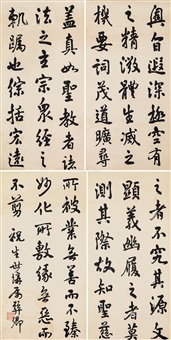 蓋真如聖教者諸
法之玄宗眾經之
軌躅也綜括宏遠
奧旨遐深極空有
之精微體生滅之
機要詞茂道曠尋
之者不究其源文
顯義幽履之者莫
測其際故知聖慈
所被業無善而不臻
妙化所敷緣無惡而
不剪 祝生世講屬 卿